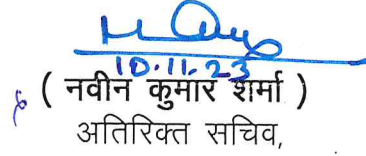 10.11.23
( नवीन कुमार शर्मा )
अतिरिक्त सचिव,